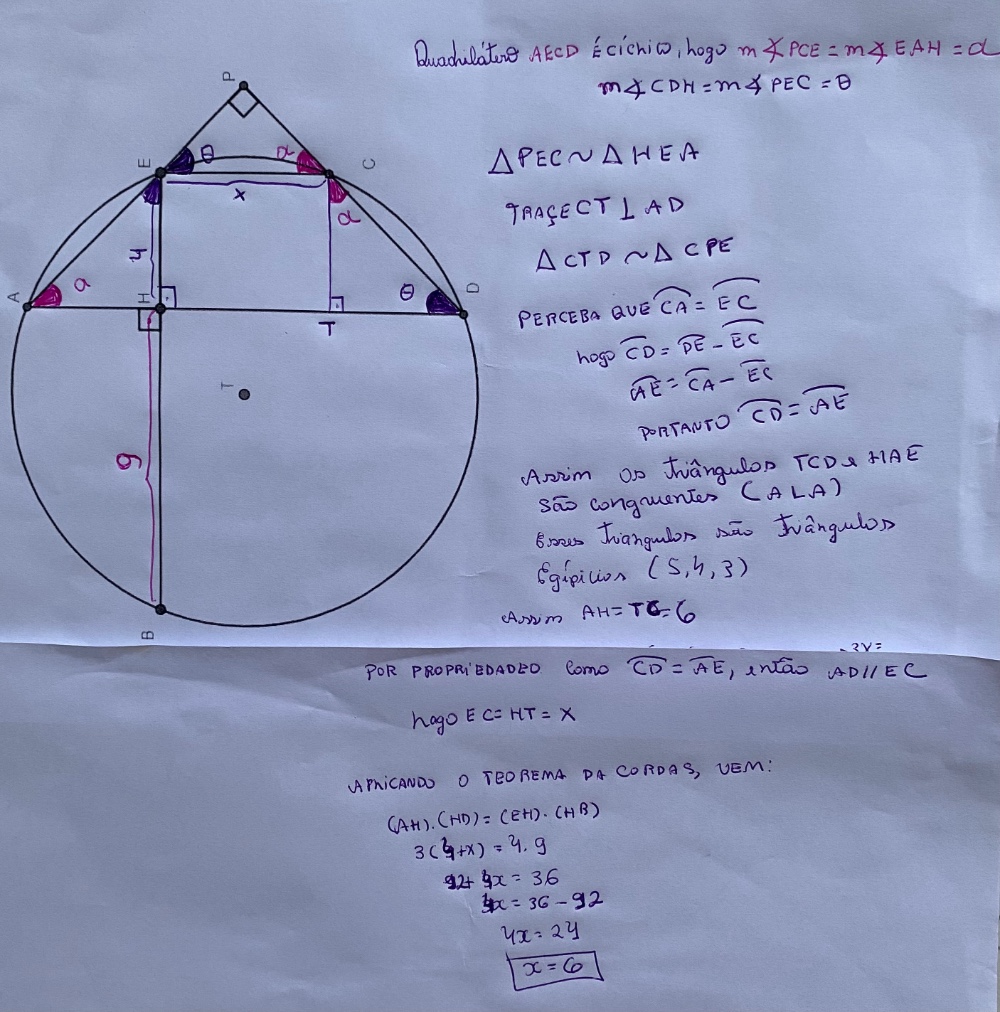 Quadrilátero AECD É cíclico, logo m∡PCE = m∡EAH = α
m∡CDH = m∡PEC = θ
ΔPEC ~ ΔHEA
TRAÇE CT ⊥ AD
ΔCTD ~ ΔCPE
PERCEBA QUE CA = EC
logo CD = DE - EC
AE = CA - EC
PORTANTO CD = AE
Assim os triângulos TCD e HAE
são congruentes (ALA)
Esses triangulos são triângulos
Egípicios (5,4,3)
Assim AH = TC = 6
POR PROPRIEDADED como CD = AE, então AD // EC
logo EC = HT = x
APLICANDO O TEOREMA DA CORDAS, VEM:
(AH).(HD) = (EH).(HB)
3(4+x) = 4.9
4x = 24
x = 6
P
E
θ
α
C
x
α
4
A
α
H
T
θ
D
T
9
B